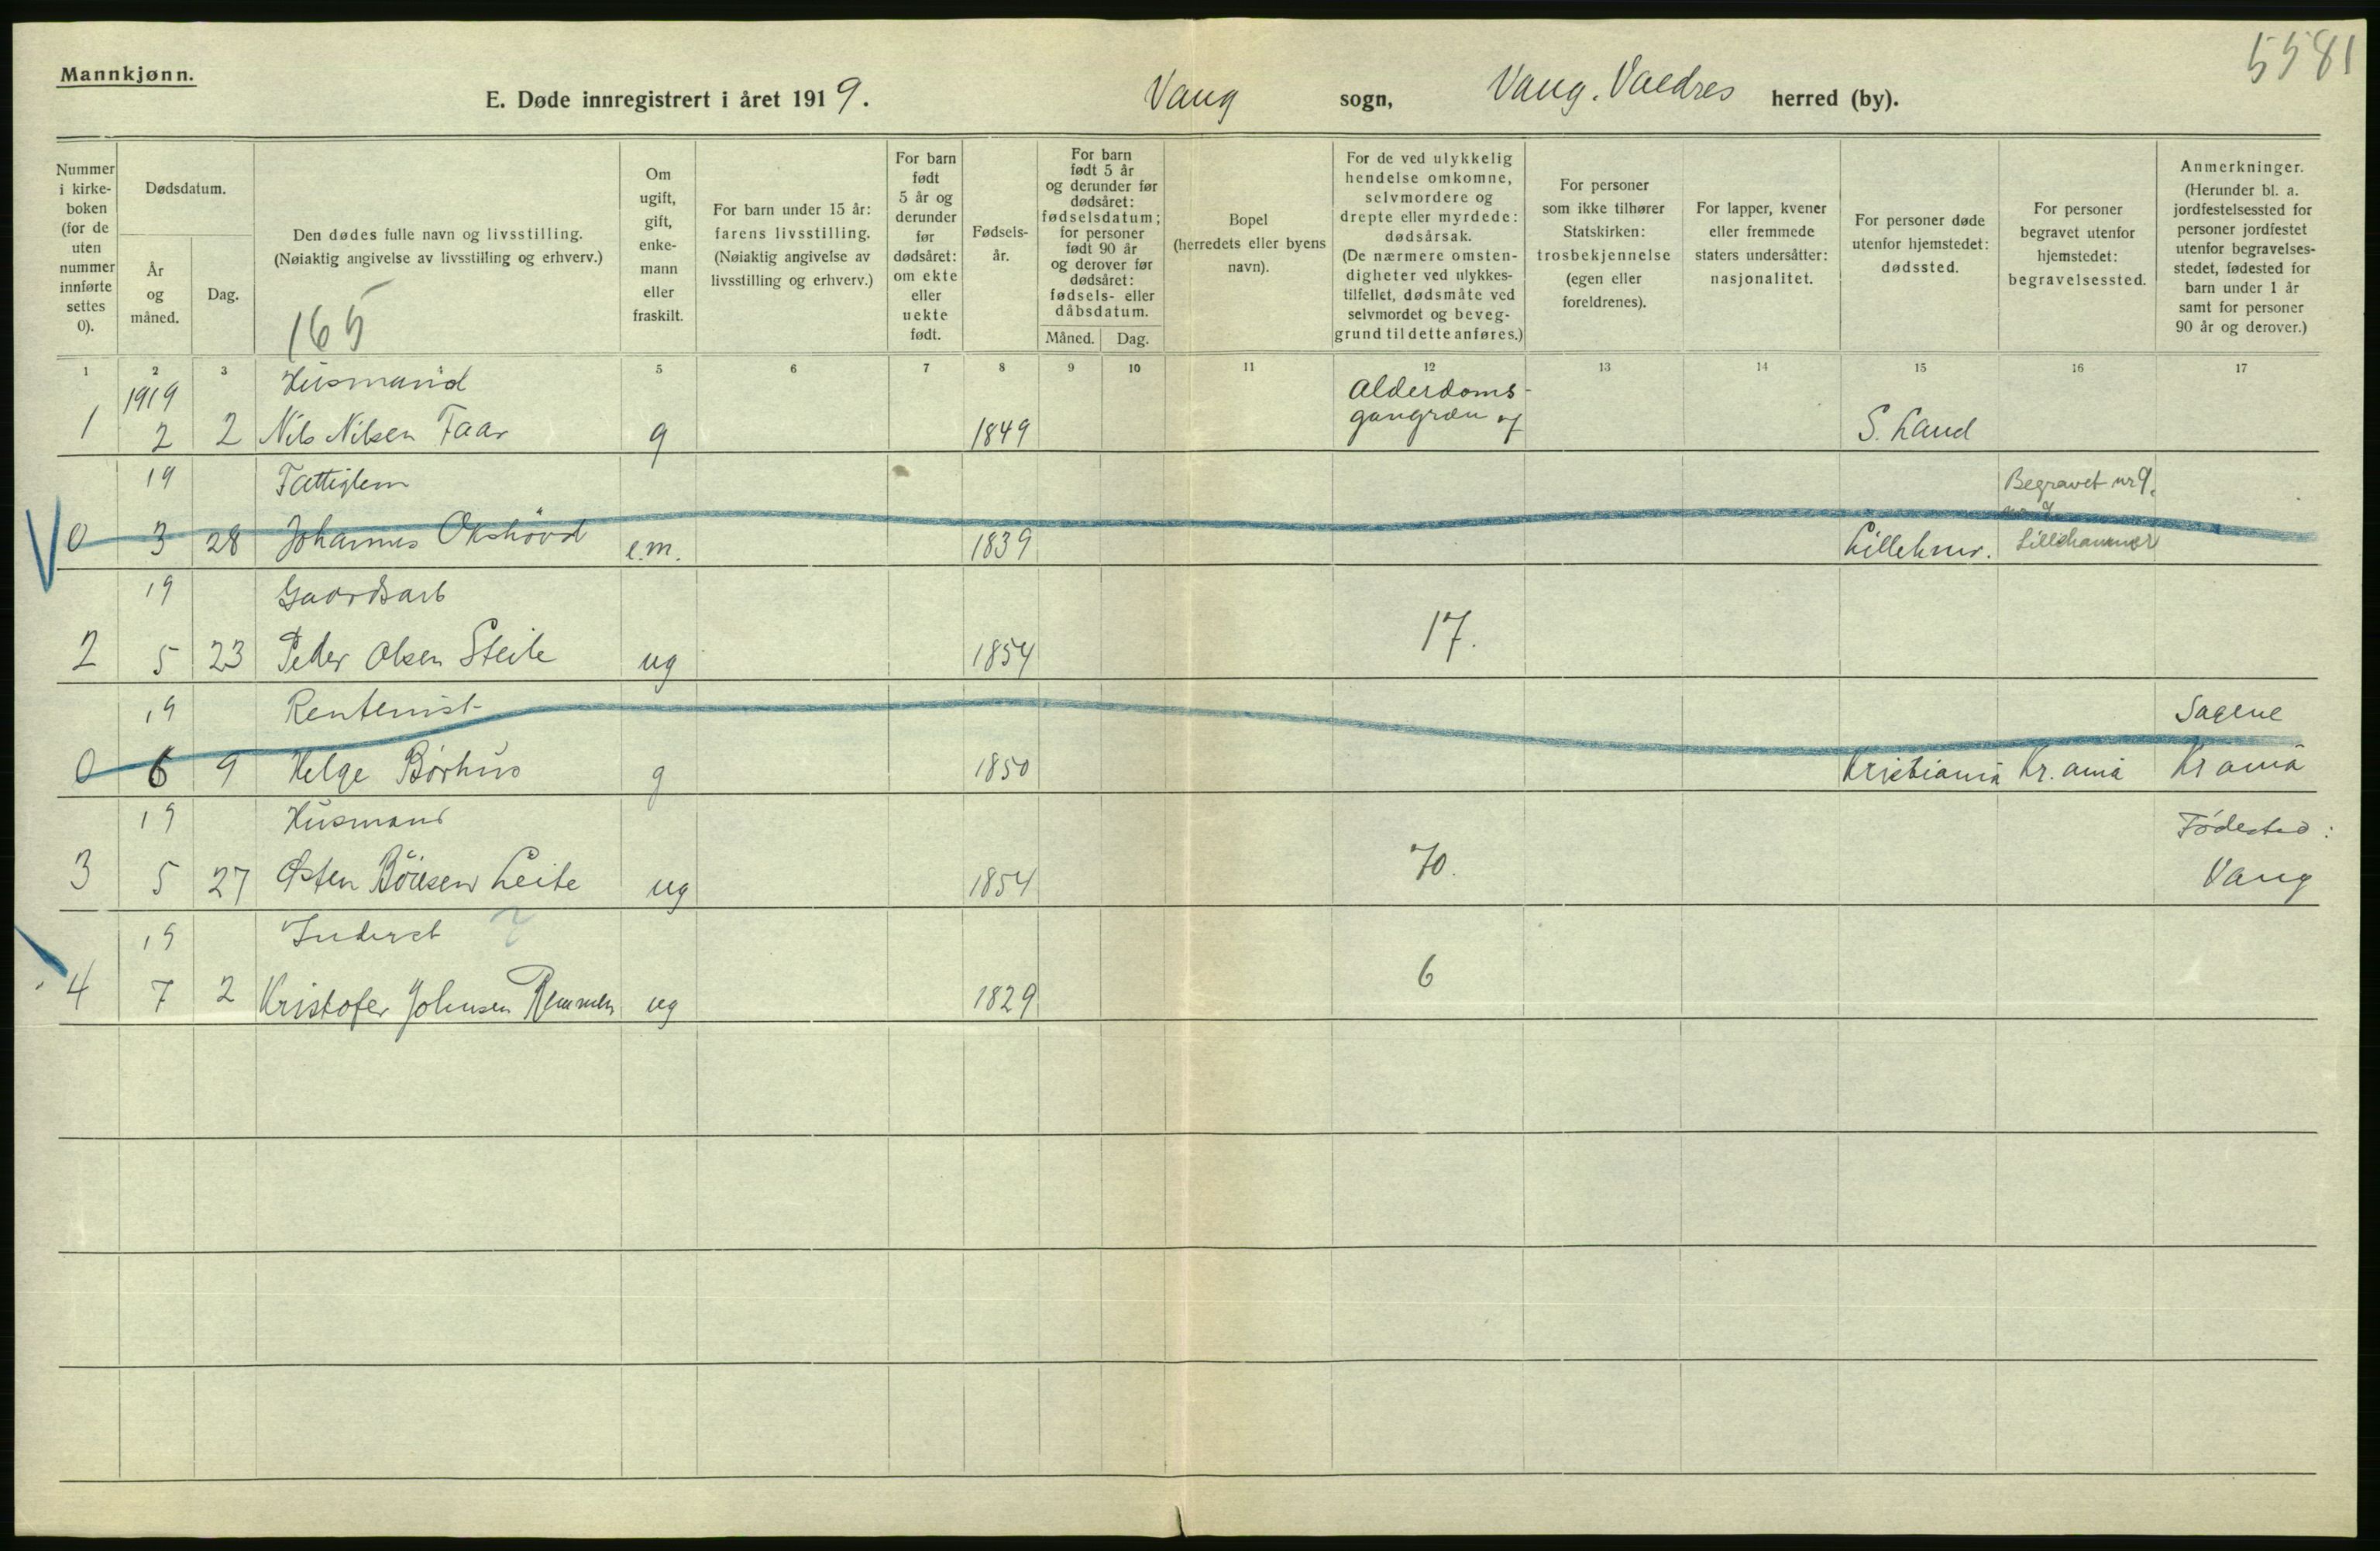 5581
Mannkjønn.
E. Døde innregistrert i året 1919. Vang sogn, Vang. Valdres herred (by).
Nummer i kirke-boken (for de uten nummer innførte settes 0).
Dødsdatum.
År og måned.
Dag.
Den dødes fulle navn og livsstilling.
(Nøiaktig angivelse av livsstilling og erhverv.)
165
Om ugift, gift, enke-mann eller fraskilt.
For barn under 15 år: farens livsstilling. (Nøiaktig angivelse av livsstilling og erhverv.)
For barn født 5 år og derunder før dødsåret: om ekte eller uekte født.
Fødsels-år.
For barn født 5 år og derunder før dødsåret: fødselsdatum; for personer født 90 år og derover før dødsåret: fødsels- eller dåbsdatum.
Måned. Dag.
Bopel (herredets eller byens navn).
For de ved ulykkelig hendelse omkomne, selvmordere og drepte eller myrdede: dødsårsak. (De nærmere omsten-digheter ved ulykkes-tilfellet, dødsmåte ved selvmordet og beveg-grund til dette anføres.)
For personer som ikke tilhører Statskirken: trosbekjennelse (egen eller foreldrenes).
For lapper, kvener eller fremmede staters undersåtter: nasjonalitet.
For personer døde utenfor hjemstedet: dødssted.
For personer begravet utenfor hjemstedet: begravelsessted.
Anmerkninger. (Herunder bl. a. jordfestelsessted for personer jordfestet utenfor begravelses-stedet, fødested for barn under 1 år samt for personer 90 år og derover.)
1 2 3 4 5 6 7 8 9 10 11 12 13 14 15 16 17
1919 Husmand Alderdoms-
1 2 2 Nils Nilsen Faar g 1849 gangræn S. Land
19 Fattiglem Begravet nr 9.
0 3 28 Johannes Okshövd e.m. 1839 Lillehmr. Lillehammer
19 Gaardsarb
2 5 23 Peder Olsen Steile ug 1854 17.
19 Rentenist Sagene
0 6 9 Helge Børhus g 1850 Kristiania Kr.ania Kr ania
19 Husmand Fødested:
3 5 27 Østen Böiesen Leite ug 1854 70. Vang
19 Inderst
4 7 2 Kristofer Johnsen Remmen ug 1829 6